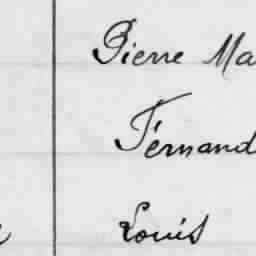 Pierre Ma
Fernand
Louis